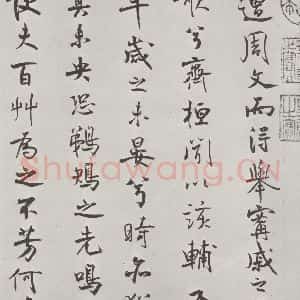 遭周文而得舉甯戚之
歌兮齊桓聞以該輔
年歲之未晏兮時亦猶
其未央恐鵜鴂之先鳴
使夫百艸為之不芳何
Shufawang.CN